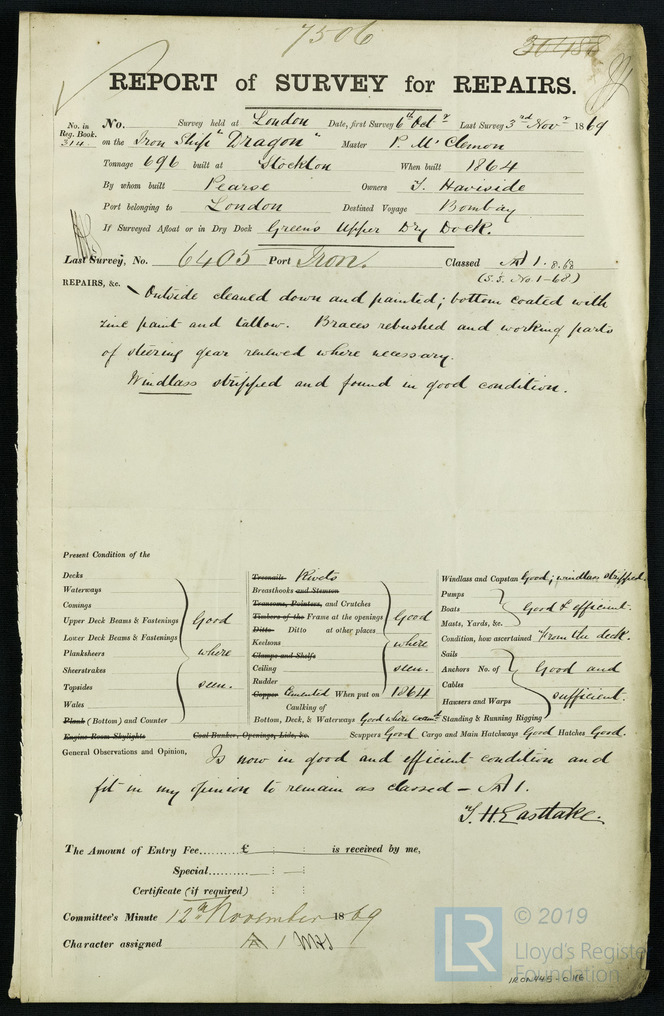 7506
30488
REPORT of SURVEY for REPAIRS.
No. in Reg. Book. 314
No. Survey held at London Date, first Survey 6th Octr Last Survey 3rd Novr 1869
on the Iron Ship "Dragon" Master P. McClemon
Tonnage 696 built at Stockton When built 1864
By whom built Pearse Owners T. Haviside
Port belonging to London Destined Voyage Bombay
If Surveyed Afloat or in Dry Dock Green's Upper Dry Dock.
Last Survey, No. 6405 Port Iron. Classed A 1. 8.68
(S.S. No. 1-68)
REPAIRS, &c. Outside cleaned down and painted; bottom coated with
zinc paint and tallow. Braces rebushed and working parts
of steering gear renewed where necessary.
Windlass stripped and found in good condition.
Present Condition of the
Decks
Waterways
Comings
Upper Deck Beams & Fastenings Good
Lower Deck Beams & Fastenings
Planksheers where
Sheerstrakes
Topsides seen.
Wales
Plank (Bottom) and Counter
Engine Room Skylights
Treenails Rivets
Breasthooks and Stemson
Transoms, Pointers, and Crutches
Timbers of the Frame at the openings Good
Ditto Ditto at other places
Keelsons where
Clamps and Shelfs
Ceiling seen.
Rudder
Copper Cemented When put on 1864
Caulking of
Bottom, Deck, & Waterways Good where seen
Coal Bunker, Openings, Lids, &c.
Windlass and Capstan Good; windlass stripped.
Pumps
Boats Good & efficient.
Masts, Yards, &c.
Condition, how ascertained From the deck.
Sails
Anchors No. of Good and
Cables
Hawsers and Warps sufficient.
Standing & Running Rigging
Scuppers Good Cargo and Main Hatchways Good Hatches Good.
General Observations and Opinion, Is now in good and efficient condition and
fit in my opinion to remain as classed – A 1.
T. H. Eastlake.
The Amount of Entry Fee.......... £ : : is received by me,
Special............... : :
Certificate (if required) : :
Committee's Minute 12th November 1869
Character assigned A 1
LR © 2019
Lloyd's Register
Foundation
IRON445-0116